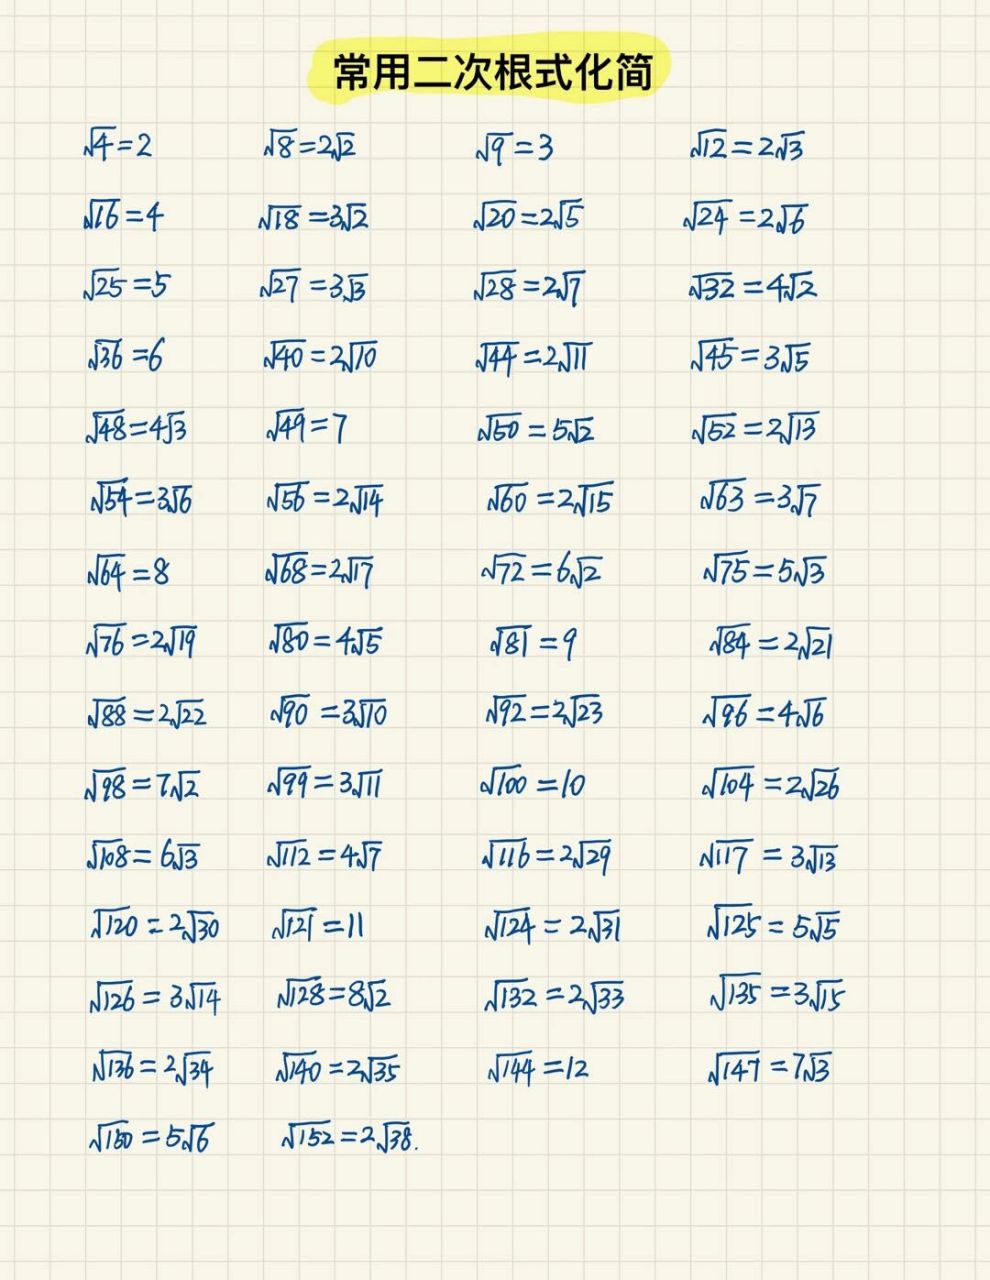 常用二次根式化简
√4=2 √8=2√2 √9=3 √12=2√3
√16=4 √18=3√2 √20=2√5 √24=2√6
√25=5 √27=3√3 √28=2√7 √32=4√2
√36=6 √40=2√10 √44=2√11 √45=3√5
√48=4√3 √49=7 √50=5√2 √52=2√13
√54=3√6 √56=2√14 √60=2√15 √63=3√7
√64=8 √68=2√17 √72=6√2 √75=5√3
√76=2√19 √80=4√5 √81=9 √84=2√21
√88=2√22 √90=3√10 √92=2√23 √96=4√6
√98=7√2 √99=3√11 √100=10 √104=2√26
√108=6√3 √112=4√7 √116=2√29 √117=3√13
√120=2√30 √121=11 √124=2√31 √125=5√5
√126=3√14 √128=8√2 √132=2√33 √135=3√15
√136=2√34 √140=2√35 √144=12 √147=7√3
√150=5√6 √152=2√38.